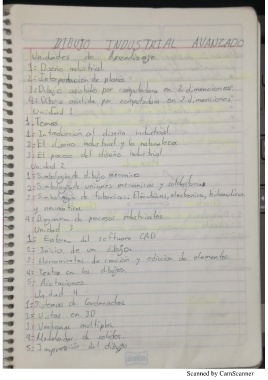 DIBUJO INDUSTRIAL AVANZADO
Unidades de Aprendizaje
1: Diseño industrial
2: Interpretación de planos
3: Dibujo asistido por computadora en 2 dimensiones
4: Dibujo asistido por computadora en 3 dimensiones
Unidad 1
Temas
1: Introducción al diseño industrial
2: El diseño industrial y la naturaleza
3: El proceso del diseño industrial
Unidad 2
1: Simbología de dibujo mecánico
2: Simbología de uniones mecánicas y soldaduras
3: Simbología de tuberías, Eléctricas, electrónica, hidraulica
y neumática
4: Diagrama de procesos industriales
Unidad 3
1: Entorno del software CAD
2: Inicio de un dibujo
3: Herramientas de creación y edición de elementos
4: Textos en los dibujos
5: Acotaciones
Unidad 4
1: Sistemas de Coordenadas
2: Vistas en 3D
3: Ventanas multiples
4: Modelador de solidos
5: Impresión del dibujo
Scanned by CamScanner